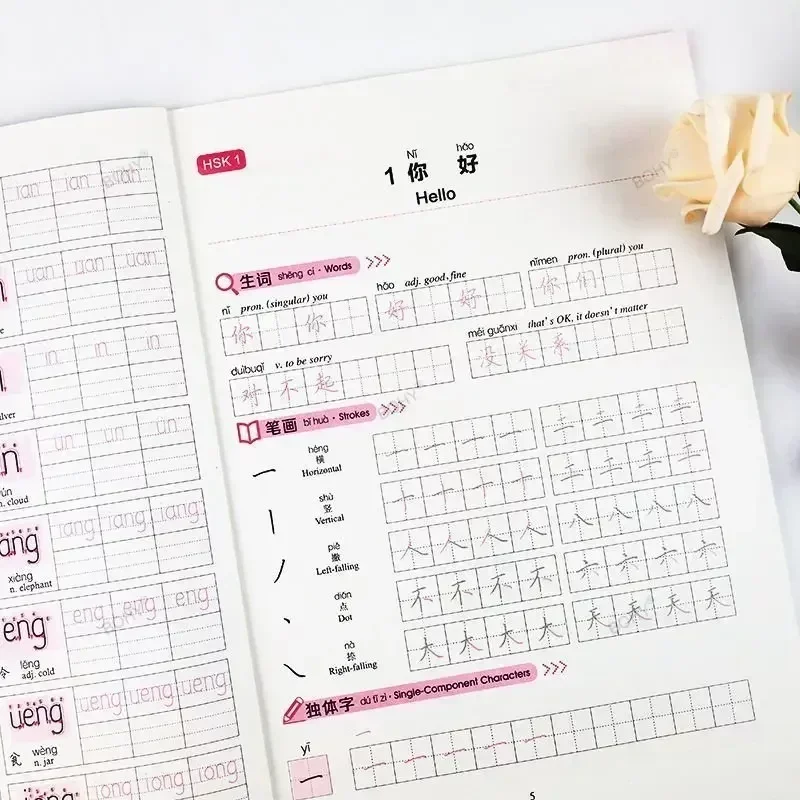 ian ian ian
uan uan uan
in in in
ilver
n. cloud
iang iang iang
xiàng
n. elephant
eng eng eng eng
lěng
adj. cold
ueng ueng ueng ueng
wèng
n. jar
iong iong iong
HSK 1
Nǐ hǎo
1 你 好
Hello
生词 shēng cí · Words
nǐ pron. (singular) you
你 你
hǎo adj. good, fine
好 好
nǐmen pron. (plural) you
你 们
duìbuqǐ v. to be sorry
对 不 起
méi guānxi that's OK, it doesn't matter
没 关 系
笔画 bǐ huà · Strokes
héng
横
Horizontal
shù
竖
Vertical
piě
撇
Left-falling
人 人 人 人 八 八 八 八
diǎn
点
Dot
不 不 不 不 六 六 六 六
nà
捺
Right-falling
大 大 大 大 天 天 天 天
独体字 dú tǐ zì · Single-Component Characters
yī
一
一 一 一 一 一
5
BOHY